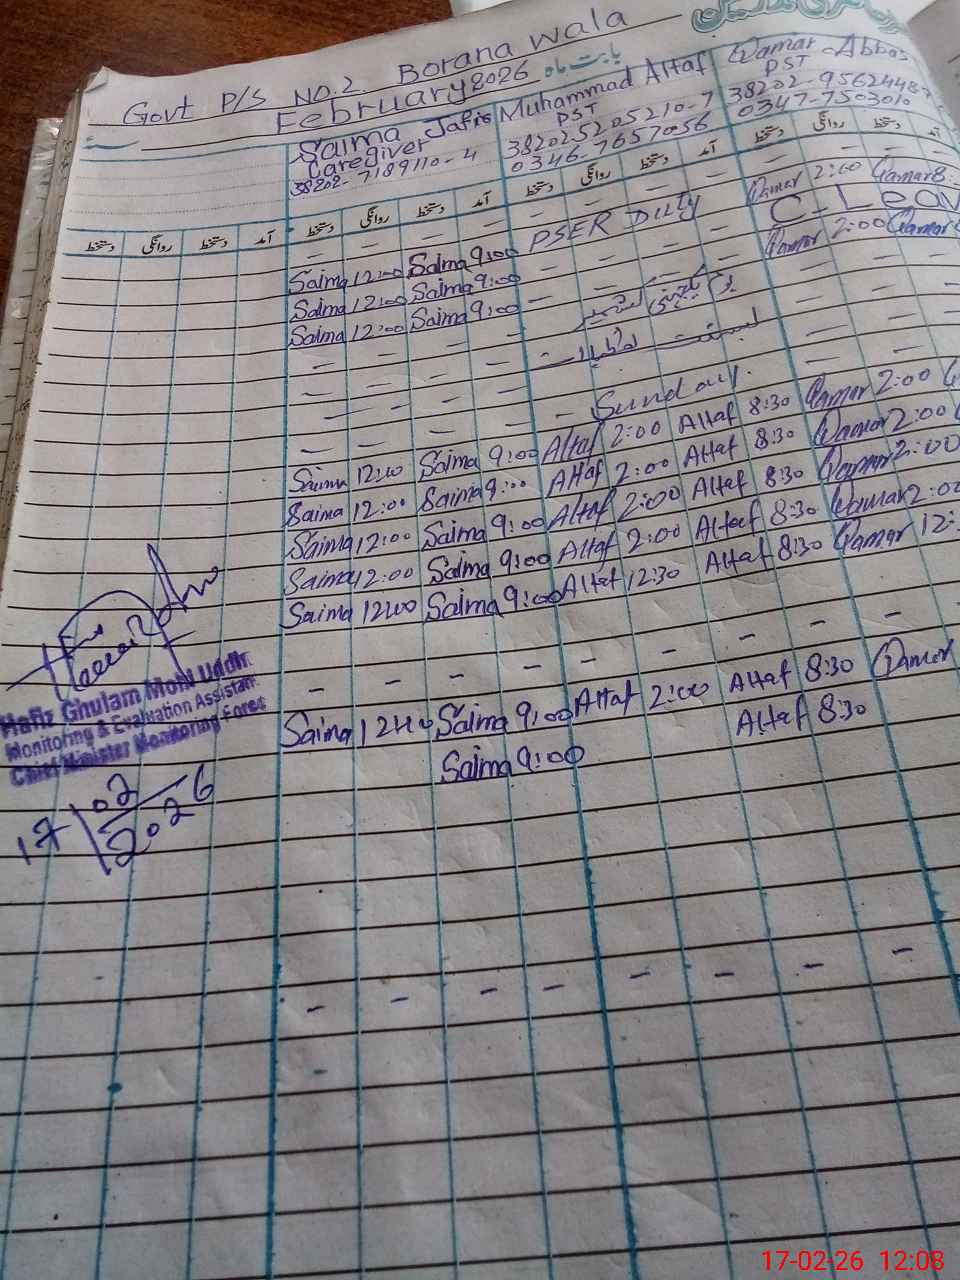 Govt P/S No.2 Borana wala
February 2026 بابت ماہ
Saima Jafir Muhammad Altaf Qamar Abbas
Caregiver PST PST
38202-7189110-4 382025205210-7 38202-9562448
0346-7657056 0347-7503010
دستخط روانگی دستخط آمد دستخط روانگی دستخط آمد دستخط روانگی دستخط آمد دستخط روانگی دستخط آمد
- - - - - - - - - - -
- - - - PSER Duty Qamar 2:00 Qamar 8:
Saima 12:00 Saima 9:00 - - - - C-Leav
Saima 12:00 Saima 9:00 - - - - Qamar 2:00 Qamar
Saima 12:00 Saima 9:00 یوم یکجہتی کشمیر
- - - -
- - - -
- - - - - Sunday.
Saima 12:00 Saima 9:00 Altaf 2:00 Altaf 8:30 Qamar 2:00
Saima 12:00 Saima 9:00 Altaf 2:00 Altaf 8:30 Qamar 2:00
Saima 12:00 Saima 9:00 Altaf 2:00 Altaf 8:30 Qamar 2:00
Saima 12:00 Saima 9:00 Altaf 2:00 Altaf 8:30 Qamar 2:00
Saima 12:00 Saima 9:00 Altaf 12:30 Altaf 8:30 Qamar 12:
- - - - - - - -
- - - - - - - -
Saima 12:00 Saima 9:00 Altaf 2:00 Altaf 8:30 Qamar
Saima 9:00 Altaf 8:30
- - - - - - - -
Hafiz Ghulam Mohi Uddin
Monitoring & Evaluation Assistant
Chief Minister Monitoring Force
17/02/2026
17-02-26 12:08